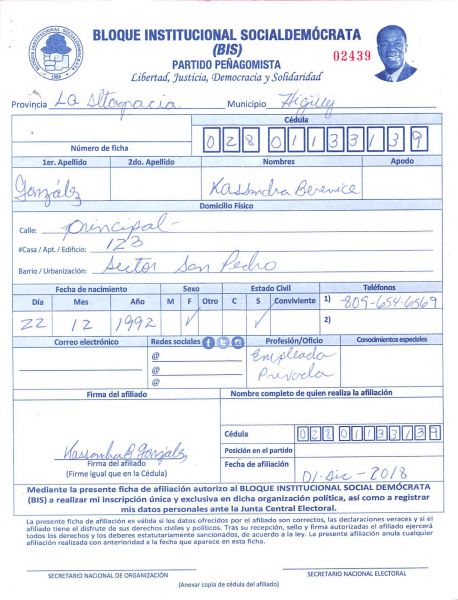 BLOQUE INSTITUCIONAL SOCIALDEMÓCRATA
(BIS)
PARTIDO PEÑAGOMISTA
Libertad, Justicia, Democracia y Solidaridad
02439
BLOQUE INSTITUCIONAL SOCIALDEMOCRATA
1989
Provincia La Altagracia Municipio Higüey
Cédula
Número de ficha 028 0113313 9
1er. Apellido 2do. Apellido Nombres Apodo
González Kassandra Berenice
Domicilio Físico
Calle: principal-
#Casa / Apt. / Edificio: 123
Barrio / Urbanización: Sector San Pedro
Fecha de nacimiento Sexo Estado Civil Teléfonos
Día Mes Año M F Otro C S Conviviente 1) 809-654-6569
22 12 1992 ✓ ✓ 2)
Correo electrónico Redes sociales Profesión/Oficio Conocimientos especiales
@ Empleada
@ Privada
@
Firma del afiliado Nombre completo de quien realiza la afiliación
Cédula 028 0113313 9
Kassandra B González Posición en el partido
Firma del afiliado Fecha de afiliación 01-Dic-2018
(Firme igual que en la Cédula)
Mediante la presente ficha de afiliación autorizo al BLOQUE INSTITUCIONAL SOCIAL DEMÓCRATA
(BIS) a realizar mi inscripción única y exclusiva en dicha organización política, así como a registrar
mis datos personales ante la Junta Central Electoral.
La presente ficha de afiliación es válida si los datos ofrecidos por el afiliado son correctos, las declaraciones veraces y si el
afiliado tiene el disfrute de sus derechos civiles y políticos. Tras su recepción, sello y firma autorizadas el afiliado ejercerá
todos los derechos y los deberes estatutariamente sancionados, de acuerdo a la ley. La presente afiliación anula cualquier
afiliación realizada con anterioridad a la fecha que aparece en esta ficha.
SECRETARIO NACIONAL DE ORGANIZACIÓN SECRETARIO NACIONAL ELECTORAL
(Anexar copia de cédula del afiliado)